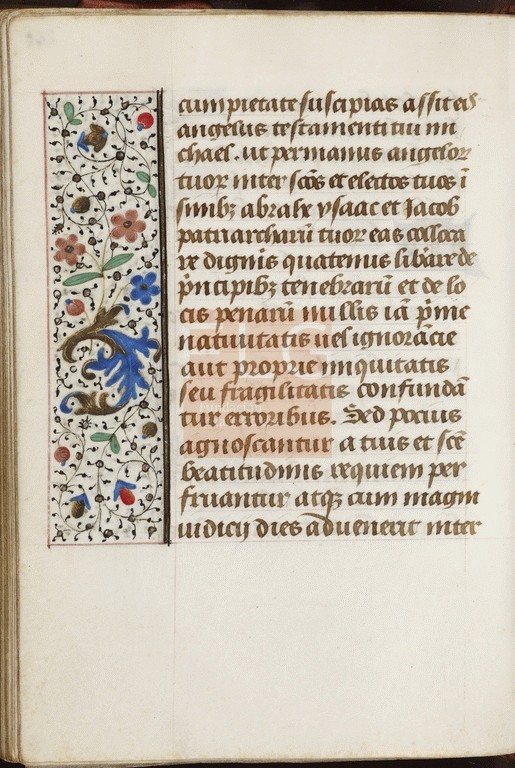 cum pietate suscipias assit eis
angelus testamenti tui mi
chael. ut per manus angelor
tuor̃ inter sc̃os et electos tuos ĩ
sinibꝫ abrahe ysaac et Jacob
patriarcharũ tuor̃ eas colloca
re digñis quatenus lib̃are de
p̃ncipibꝫ tenebrarũ et de lo
cis penarũ nullis iã p̃me
natiuitatis uel ignorãcie
aut proprie iniquitatis
seu fragilitatis confundã
tur erroribus. Sed pocius
agnoscantur a tuis et sc̃e
beatitudinis requiem per
fruantur atqꝫ cum magni
iudicij dies aduenerit inter